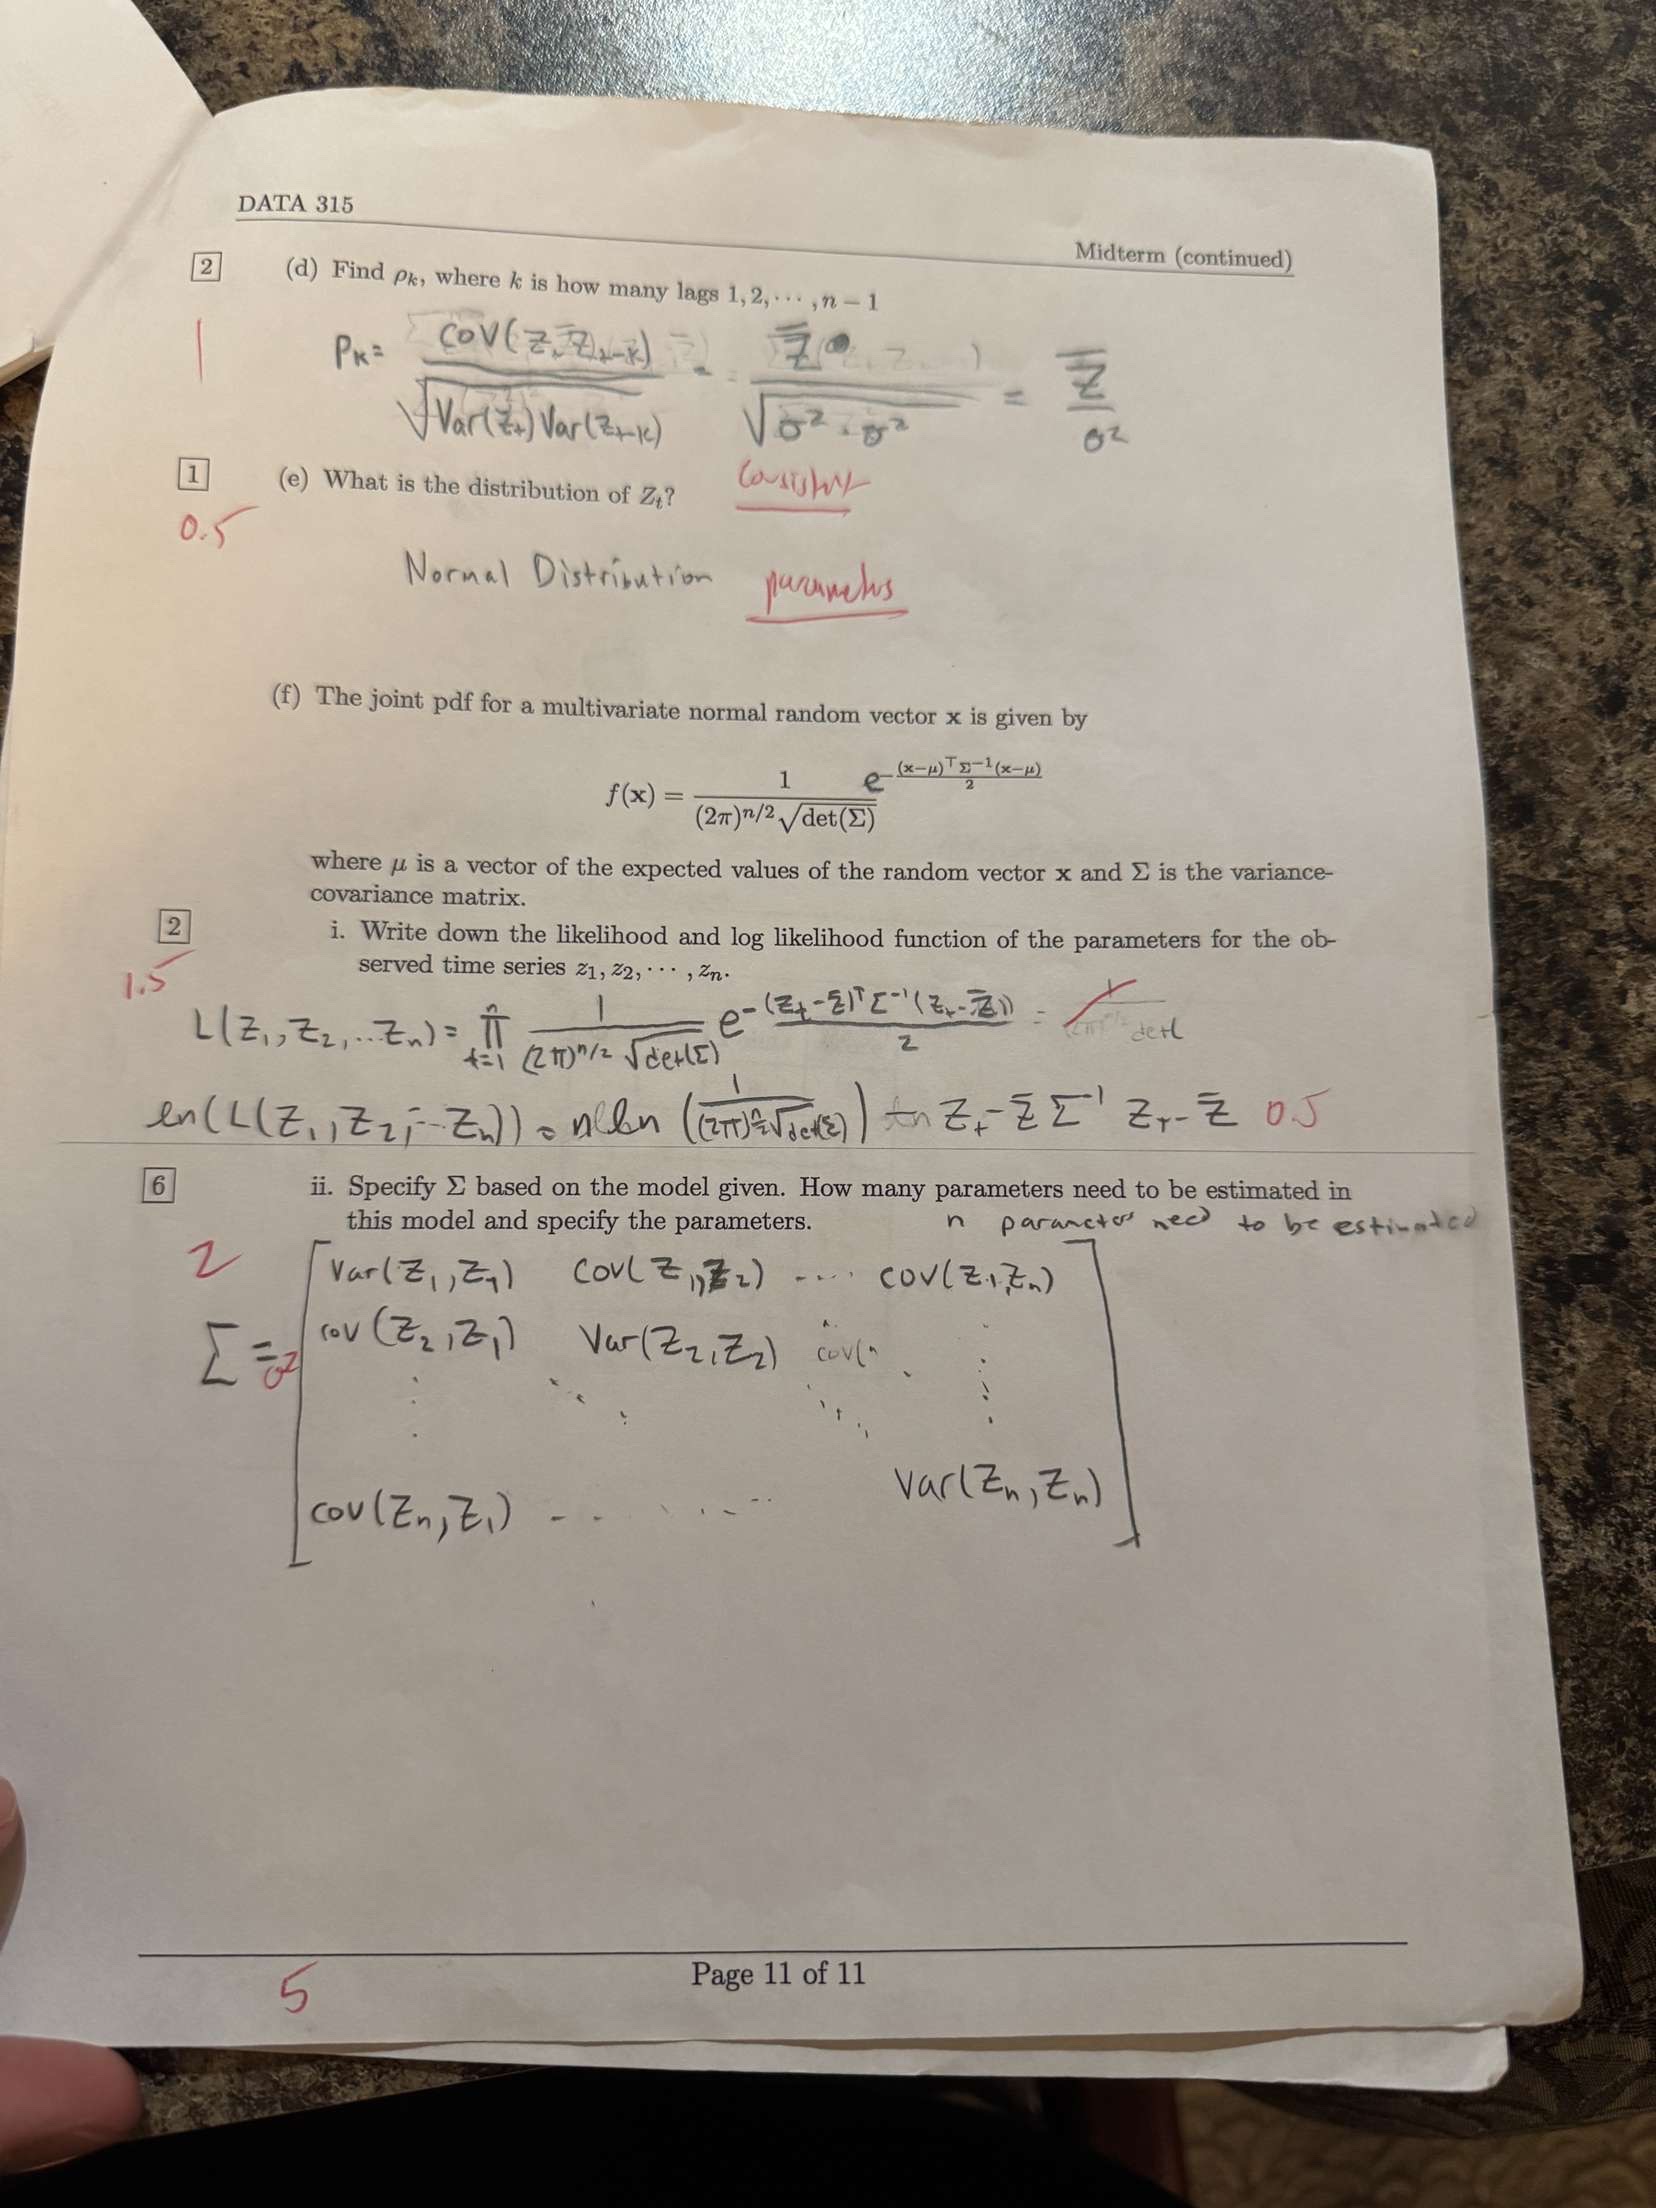 DATA 315
Midterm (continued)
2 (d) Find ρk, where k is how many lags 1, 2, ⋯ , n − 1
1
ρk = COV(Zt, Zt-k) / √Var(Zt) Var(Zt-k) = Z̄ / √σ² · σ² = Z̄ / σ²
1 (e) What is the distribution of Zt?
Consistent
0.5
Normal Distribution
parameters
(f) The joint pdf for a multivariate normal random vector x is given by
f(x) = 1 / (2π)^n/2 √det(Σ) e^−(x−μ)^⊤ Σ^−1 (x−μ) / 2
where μ is a vector of the expected values of the random vector x and Σ is the variance-
covariance matrix.
2 i. Write down the likelihood and log likelihood function of the parameters for the ob-
served time series z1, z2, ⋯ , zn.
1.5
L(Z1, Z2, ... Zn) = n π t=1 1 / (2π)^n/2 √det(Σ) e^-(Zt - Z̄)^T Σ^-1 (Zt - Z̄) / 2 =
ln(L(Z1, Z2, ... Zn)) = n ln (1 / (2π)^n/2 √det(Σ)) Zt - Z̄ Σ^-1 Zt - Z̄ 0.5
6 ii. Specify Σ based on the model given. How many parameters need to be estimated in
this model and specify the parameters. n parameters need to be estimated
2
var(Z1, Z1) COV(Z1, Z2) .... COV(Z1, Zn)
cov(Z2, Z1) Var(Z2, Z2) cov(
Σ = σ²
cov(Zn, Z1) - - . . . . Var(Zn, Zn)
Page 11 of 11
5